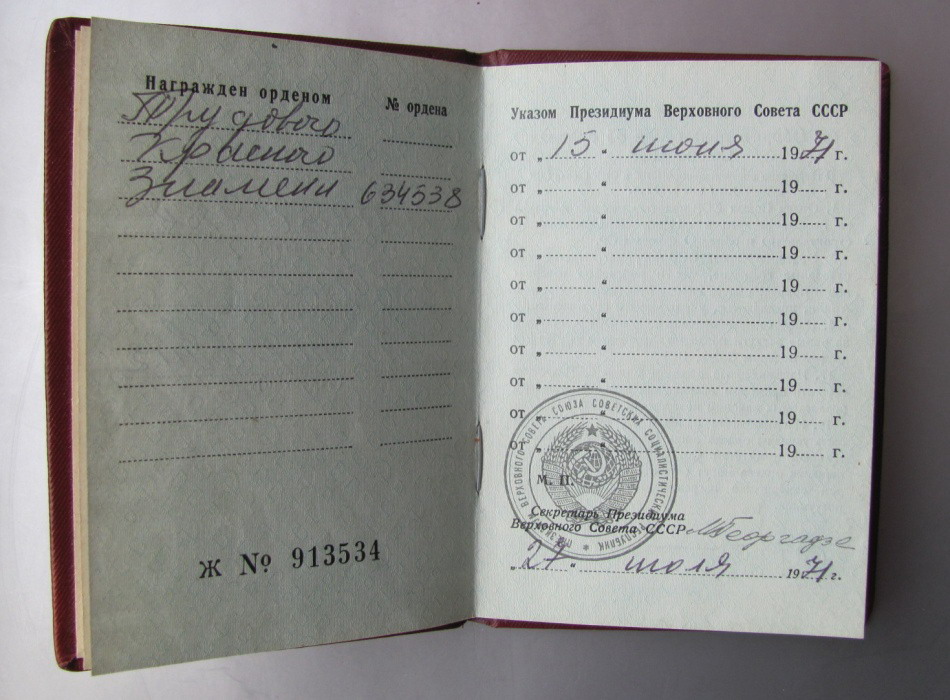 Награжден орденом
№ ордена
Трудового
Красного
Знамени 634538
Ж № 913534
Указом Президиума Верховного Совета СССР
от „15“ 1971 г.
от „ “ 19 г.
от „ “ 19 г.
от „ “ 19 г.
от „ “ 19 г.
от „ “ 19 г.
от „ “ 19 г.
от „ “ 19 г.
от „ “ 19 г.
от „ “ 19 г.
ПРЕЗИДИУМ ВЕРХОВНОГО СОВЕТА СОЮЗА СОВЕТСКИХ СОЦИАЛИСТИЧЕСКИХ РЕСПУБЛИК
М. П.
Секретарь Президиума
Верховного Совета СССР МГеоргадзе
„27“ июля 1971 г.